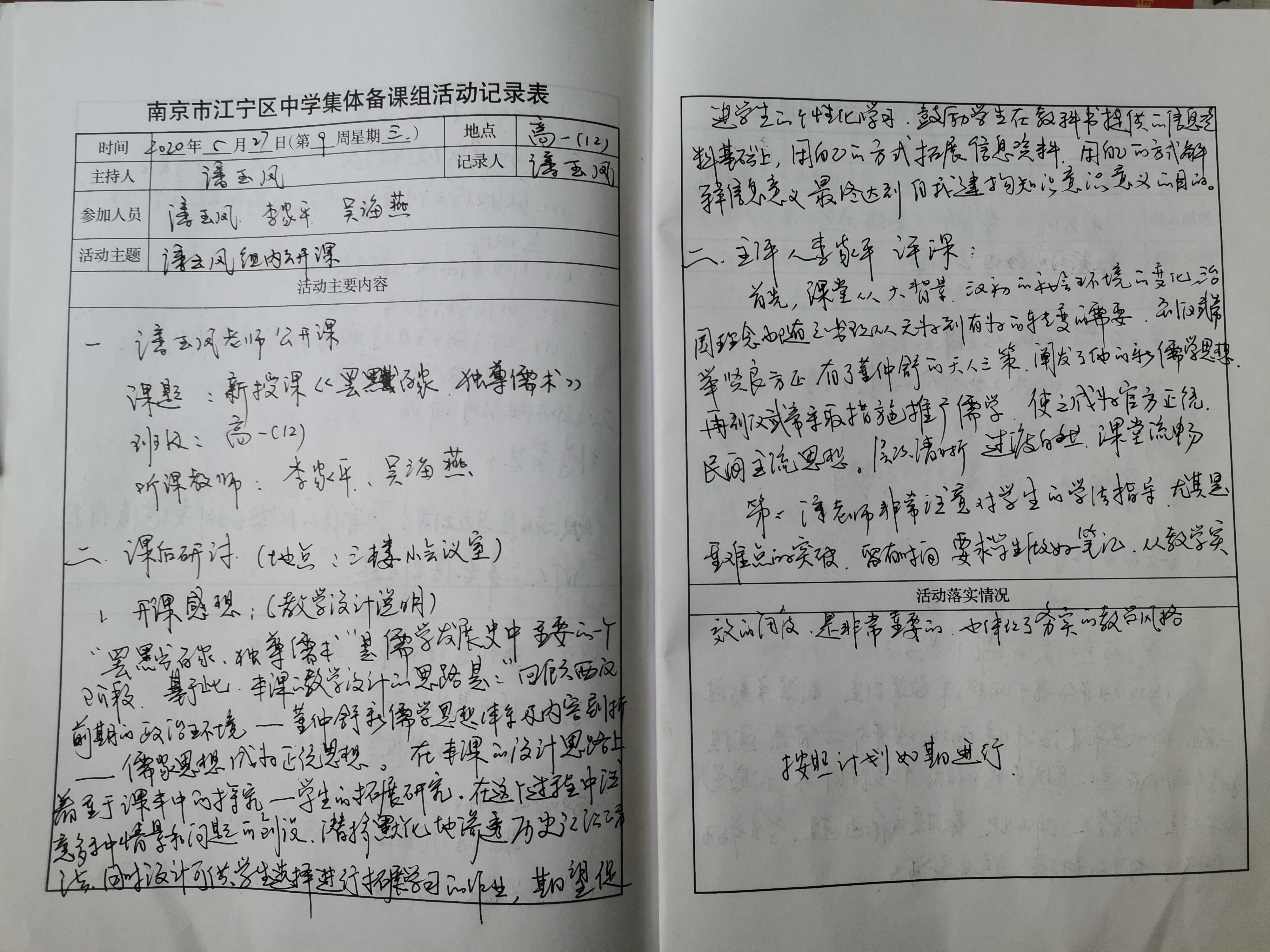 南京市江宁区中学集体备课组活动记录表
时间 2020年5月27日(第9周星期三) 地点 高一(12)
主持人 潘玉凤 记录人 潘玉凤
参加人员 潘玉凤 李家平 吴海燕
活动主题 潘玉凤组内公开课
活动主要内容
一 潘玉凤老师公开课
课题：新授课《罢黜百家 独尊儒术》
班级：高一(12)
听课教师：李家平、吴海燕
二 课后研讨 (地点：三楼小会议室)
1、开课感想：(教学设计说明)
“罢黜百家，独尊儒术”是儒学发展史中重要的一个
阶段，基于此，本课的教学设计的思路是：“回顾西汉
前期的政治环境——董仲舒新儒学思想体系及内容剖析
——儒家思想成为正统思想。在本课的设计思路上
着重于课本中的探究—学生的拓展研究，在这个过程中注
意多种情景和问题的创设，潜移默化地渗透历史
法，同时设计可供学生选择进行拓展学习的作业，期望促
进学生的个性化学习，鼓励学生在教科书提供的信息资
料基础上，用自己的方式拓展信息资料，用自己的方式解
释信息意义，最终达到自我建构知识意识意义的目的。
二、主评人李家平评课：
首先，课堂从大背景，汉初的社会环境的变化，治
国理念也随之出现从无为到有为的转变的需要，到汉武帝
举贤良方正，有了董仲舒的天人三策，阐发了他的新儒学思想，
再到汉武帝采取措施推广儒学，使之成为官方正统，
民间主流思想。层次清晰，过渡自然，课堂流畅
第二、潘老师非常注意对学生的学法指导，尤其是
重难点的突破，留有时间，要求学生做好笔记，从教学实
活动落实情况
效的角度，是非常重要的，也体现了务实的教学风格
按照计划如期进行.